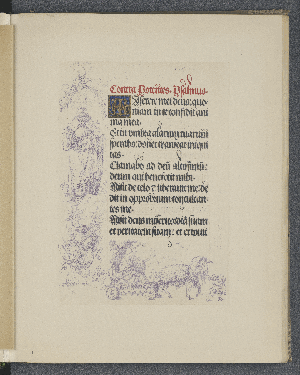 Contra Potentes. Psalmus.
Miserere mei deus: quo-
niam in te confidit ani
ma mea.
Et in umbra alarum tuarum
sperabo: donec transeat iniqui
tas.
Clamabo ad deũ altissimũ:
deum qui benefecit mihi.
Misit de celo & liberavit me: de
dit in opprobrium conculcan-
tes me.
Misit deus misericordiã suam
et veritatem suam: et eripuit